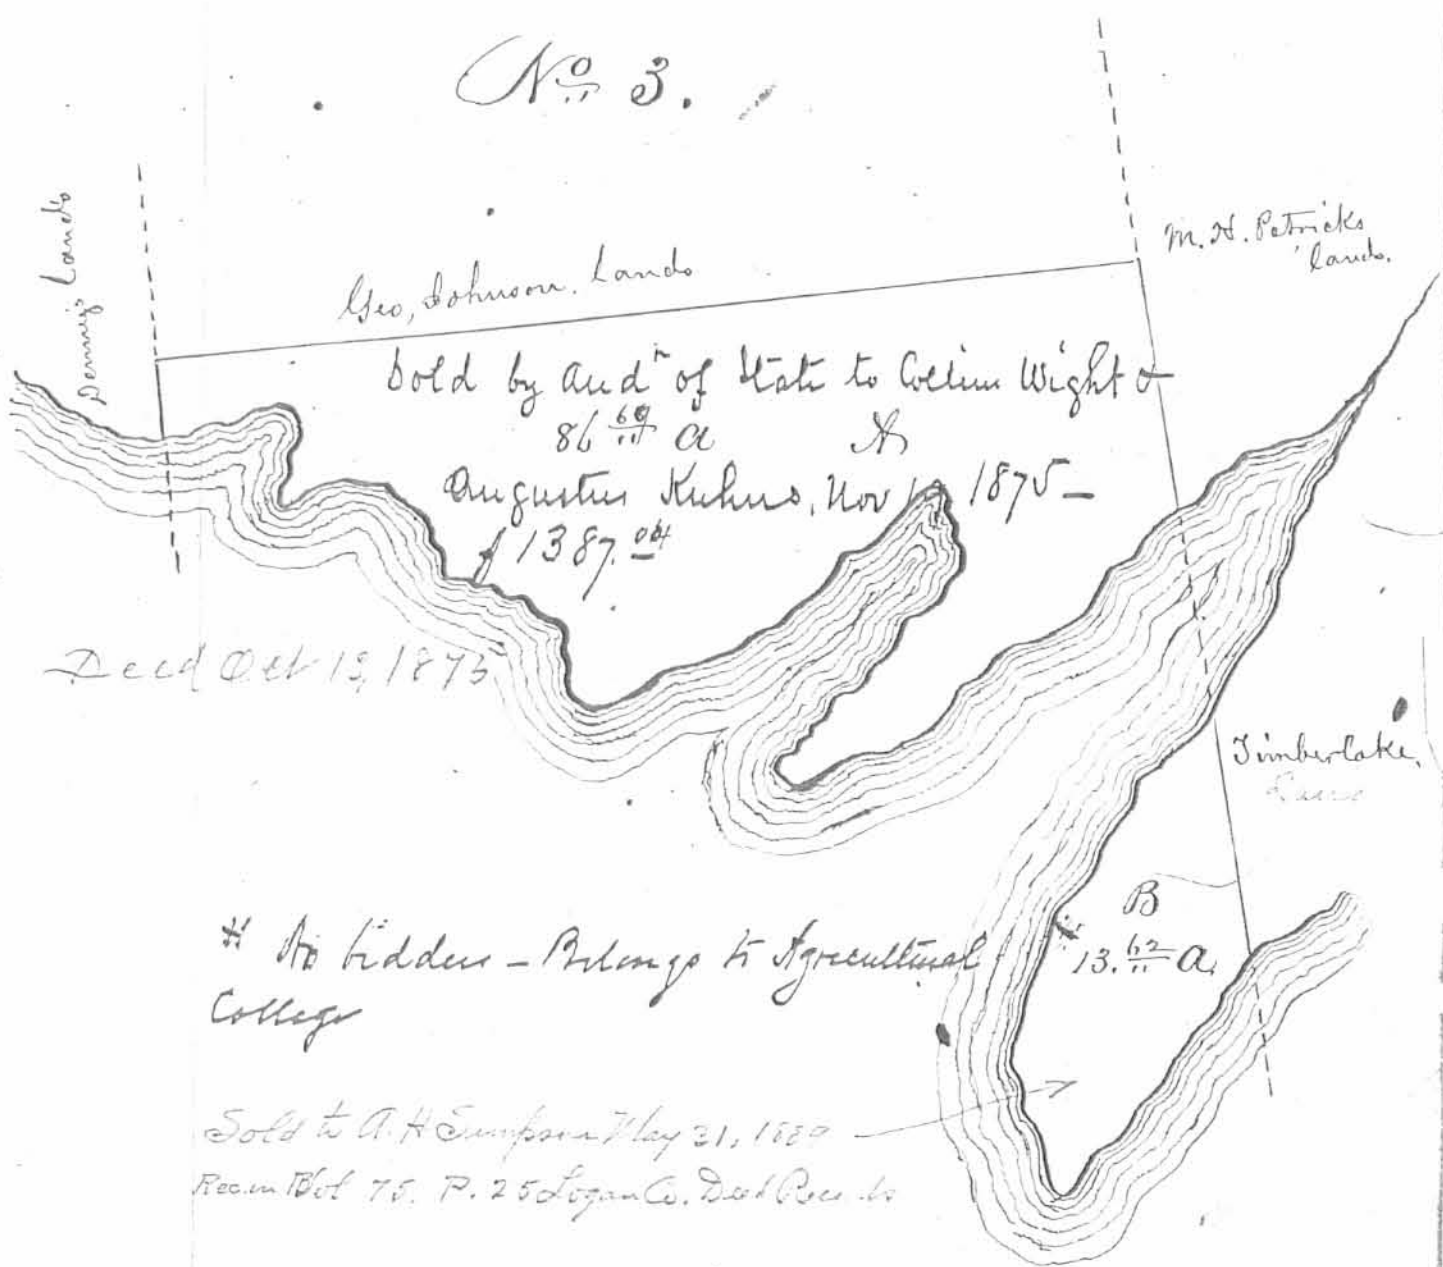 No 3.
Dennigs Lands
Geo, Johnson. Lands
M. H. Patricks
lands.
Sold by Audr of State to Collins Wight &
86 60 a A
Augustus Kuhns, Nov 1875 —
$1387.04
Deed Oct 13, 1875
Timberlake,
Lands
B
13. 62 a.
# No bidders — Belongs to Agricultural
College
Sold to A. H Simpson May 31, 1889
Rec. in Vol 75. P. 25 Logan Co. Deed Records